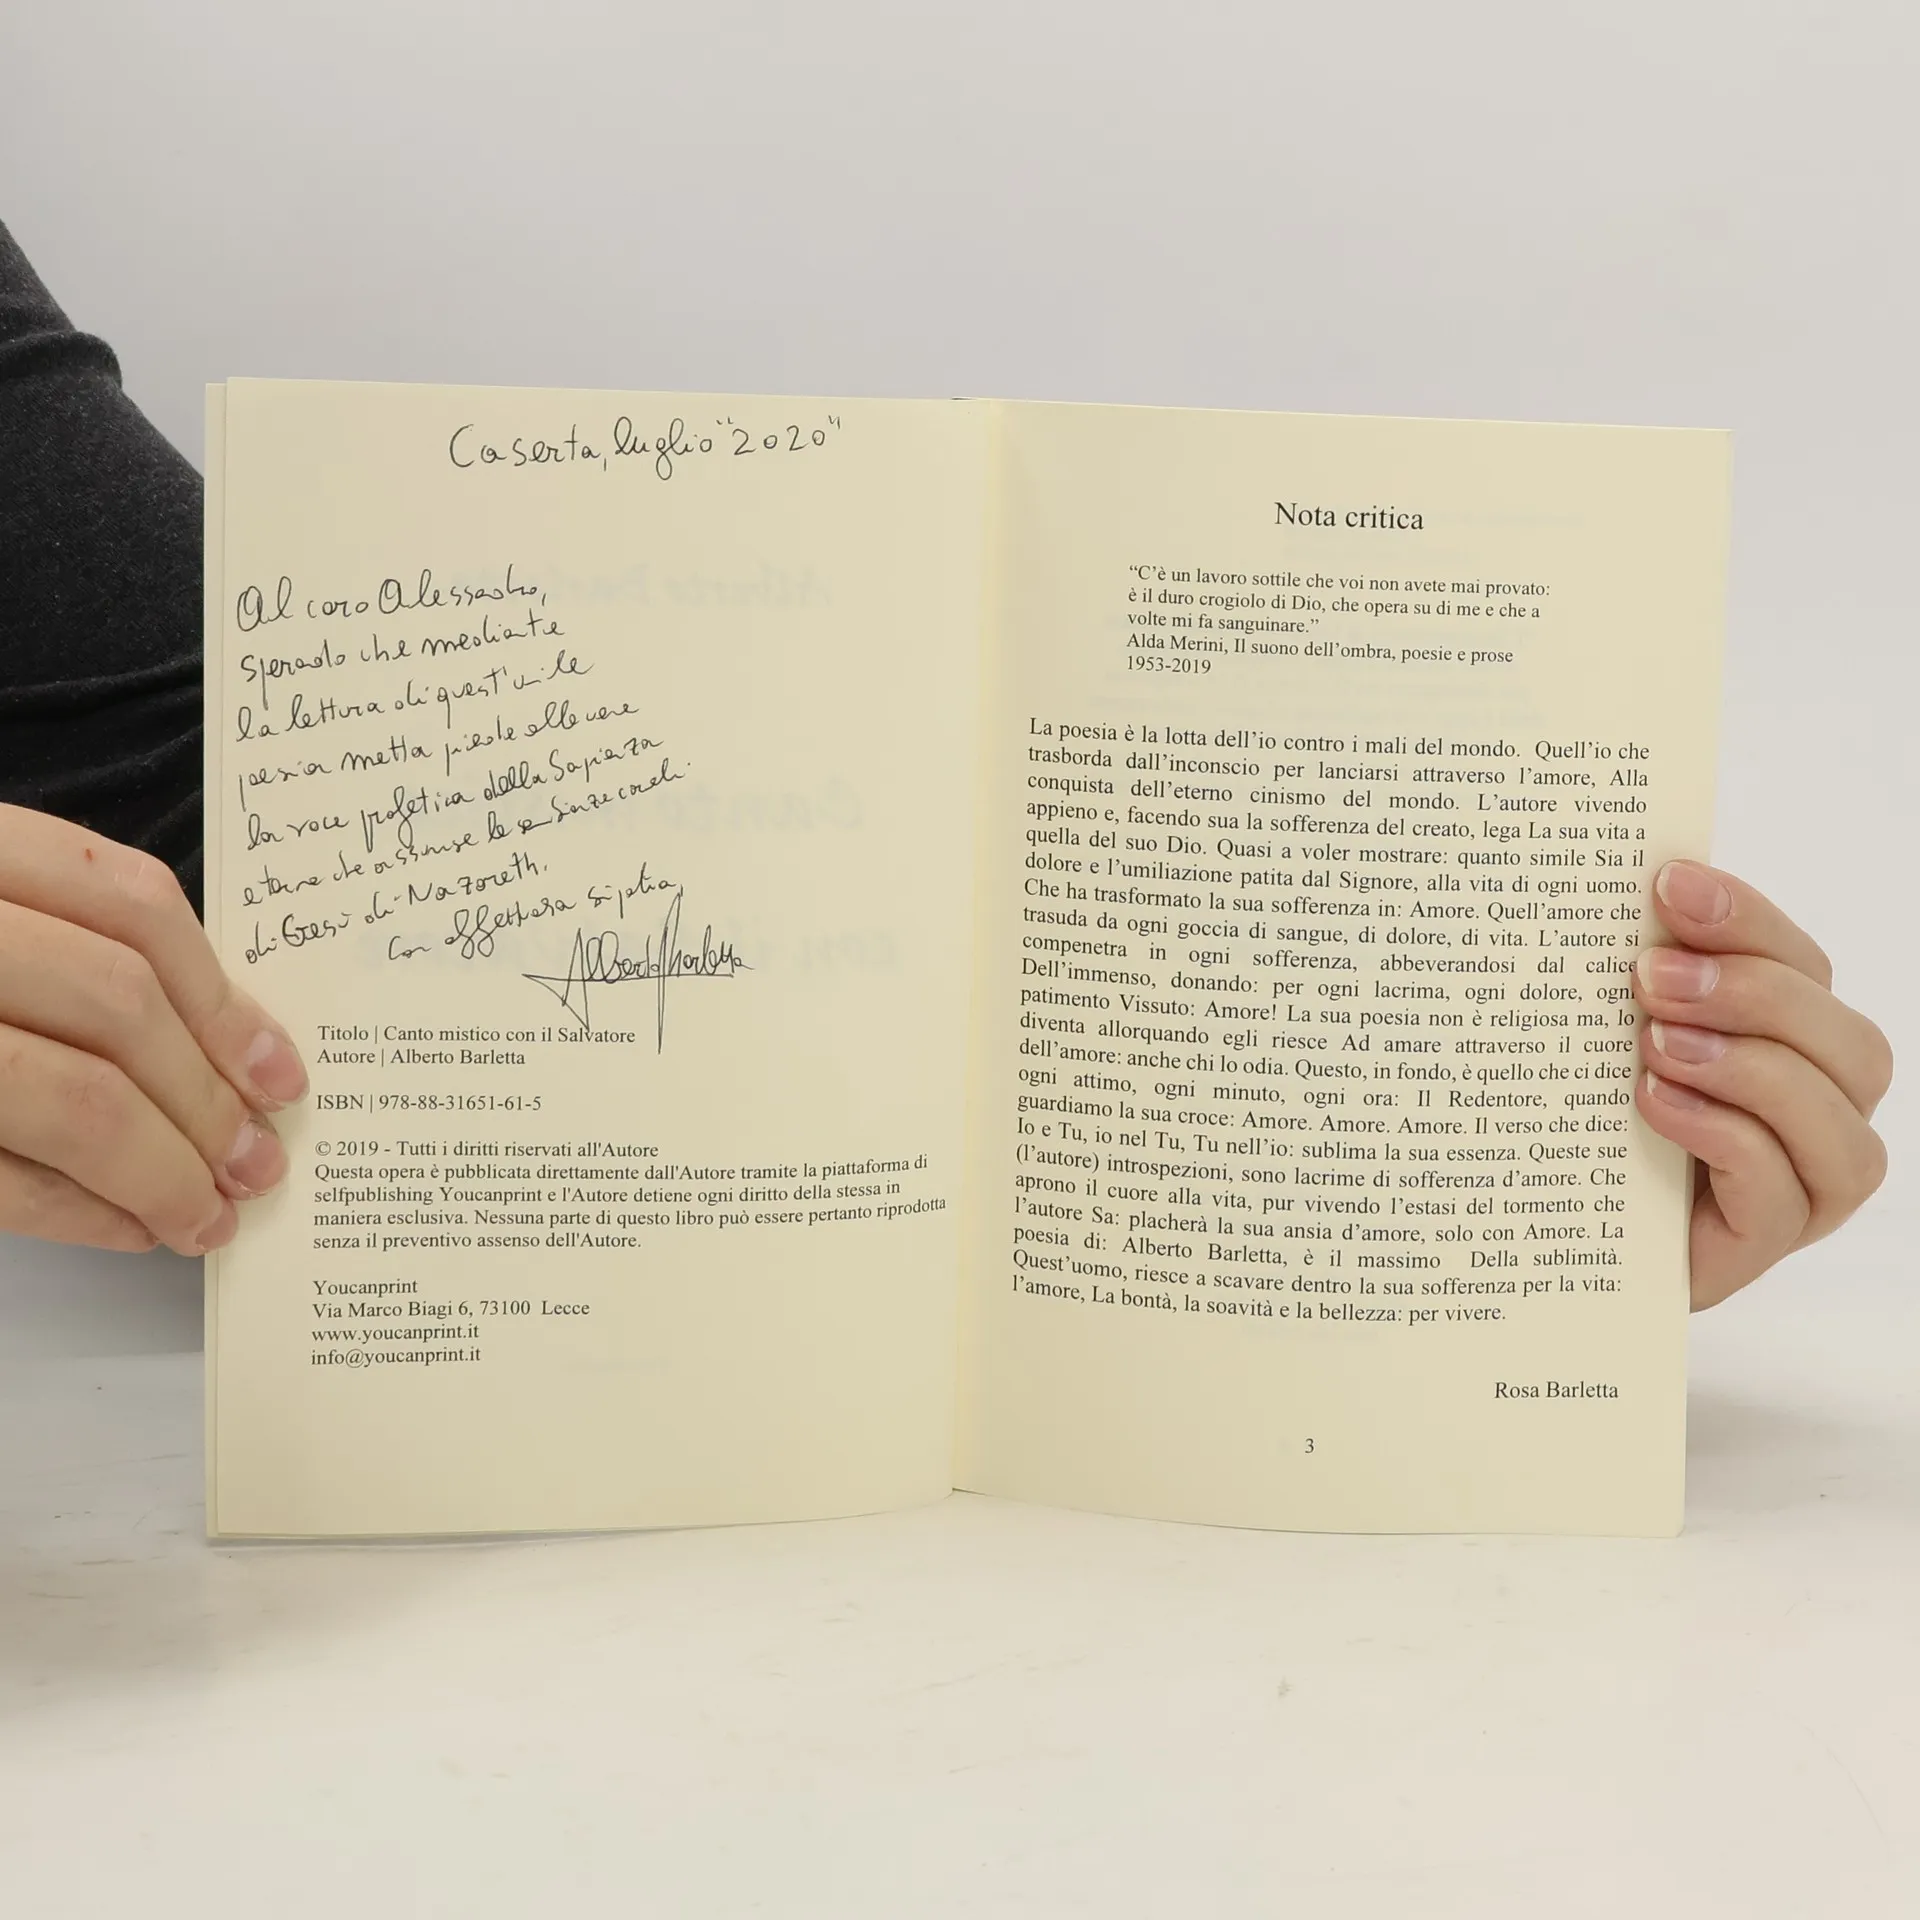 Caserta, luglio "2020"
Al caro Alessandro,
sperando che mediante
la lettura di quest'umile
poesia metta piede alle vere
la voce profetica della Sapienza
eterna che assunse le sembianze
di Gesù di Nazareth.
Con affettuosa
Alberto Barletta
Titolo | Canto mistico con il Salvatore
Autore | Alberto Barletta
ISBN | 978-88-31651-61-5
© 2019 - Tutti i diritti riservati all'Autore
Questa opera è pubblicata direttamente dall'Autore tramite la piattaforma di
selfpublishing Youcanprint e l'Autore detiene ogni diritto della stessa in
maniera esclusiva. Nessuna parte di questo libro può essere pertanto riprodotta
senza il preventivo assenso dell'Autore.
Youcanprint
Via Marco Biagi 6, 73100 Lecce
www.youcanprint.it
info@youcanprint.it
Nota critica
“C’è un lavoro sottile che voi non avete mai provato:
è il duro crogiolo di Dio, che opera su di me e che a
volte mi fa sanguinare.”
Alda Merini, Il suono dell’ombra, poesie e prose
1953-2019
La poesia è la lotta dell’io contro i mali del mondo. Quell’io che
trasborda dall’inconscio per lanciarsi attraverso l’amore, Alla
conquista dell’eterno cinismo del mondo. L’autore vivendo
appieno e, facendo sua la sofferenza del creato, lega La sua vita a
quella del suo Dio. Quasi a voler mostrare: quanto simile Sia il
dolore e l’umiliazione patita dal Signore, alla vita di ogni uomo.
Che ha trasformato la sua sofferenza in: Amore. Quell’amore che
trasuda da ogni goccia di sangue, di dolore, di vita. L’autore si
compenetra in ogni sofferenza, abbeverandosi dal calice
Dell’immenso, donando: per ogni lacrima, ogni dolore, ogni
patimento Vissuto: Amore! La sua poesia non è religiosa ma, lo
diventa allorquando egli riesce Ad amare attraverso il cuore
dell’amore: anche chi lo odia. Questo, in fondo, è quello che ci dice
ogni attimo, ogni minuto, ogni ora: Il Redentore, quando
guardiamo la sua croce: Amore. Amore. Amore. Il verso che dice:
Io e Tu, io nel Tu, Tu nell’io: sublima la sua essenza. Queste sue
(l’autore) introspezioni, sono lacrime di sofferenza d’amore. Che
aprono il cuore alla vita, pur vivendo l’estasi del tormento che
l’autore Sa: placherà la sua ansia d’amore, solo con Amore. La
poesia di: Alberto Barletta, è il massimo Della sublimità.
Quest’uomo, riesce a scavare dentro la sua sofferenza per la vita:
l’amore, La bontà, la soavità e la bellezza: per vivere.
Rosa Barletta
3